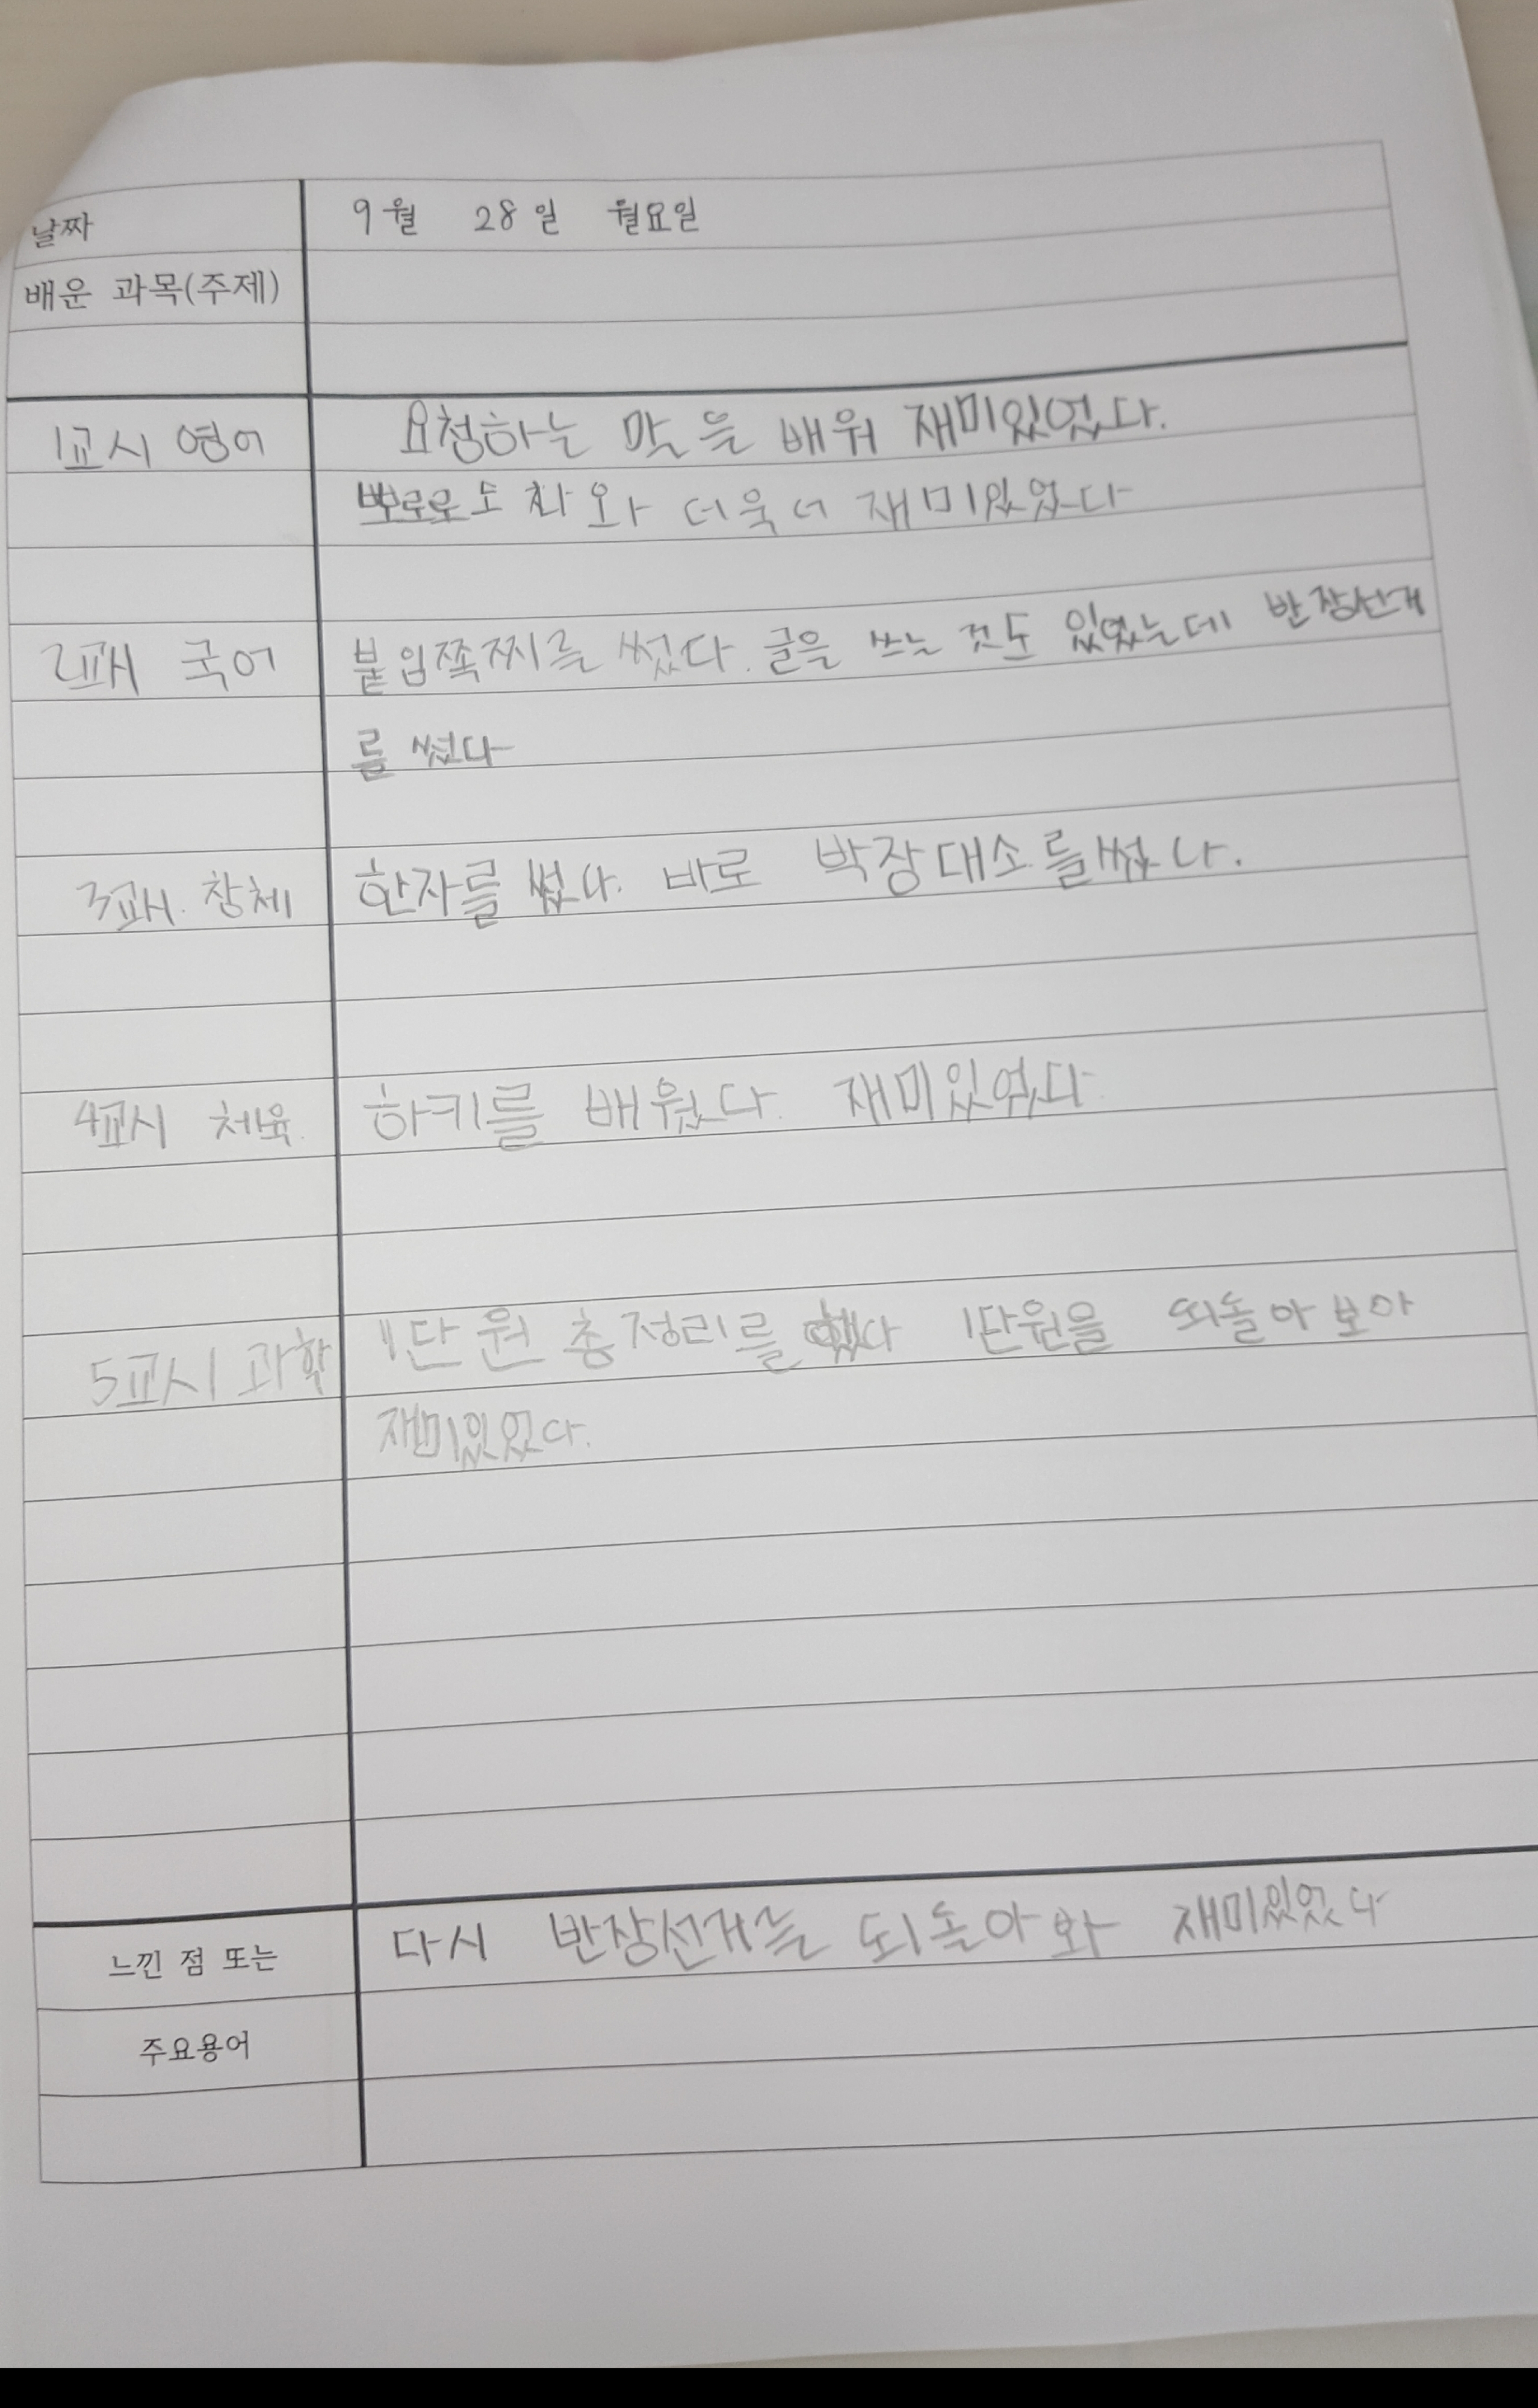 날짜 9월 28일 월요일
배운 과목(주제)
1교시 영어 요청하는 말을 배워 재미있었다.
뽀로로도 나와 더욱더 재미있었다
2교시 국어 붙임쪽찌를 썼다. 글을 쓰는 것도 있었는데 반장선거
를 썼다
3교시. 창체 한자를 썼다. 바로 박장대소를썼다.
4교시 체육. 하키를 배웠다. 재미있었다.
5교시 과학 1단원 총정리를 했다 1단원을 되돌아보아
재미있었다.
느낀 점 또는 다시 반장선거를 되돌아와 재미있었다
주요용어